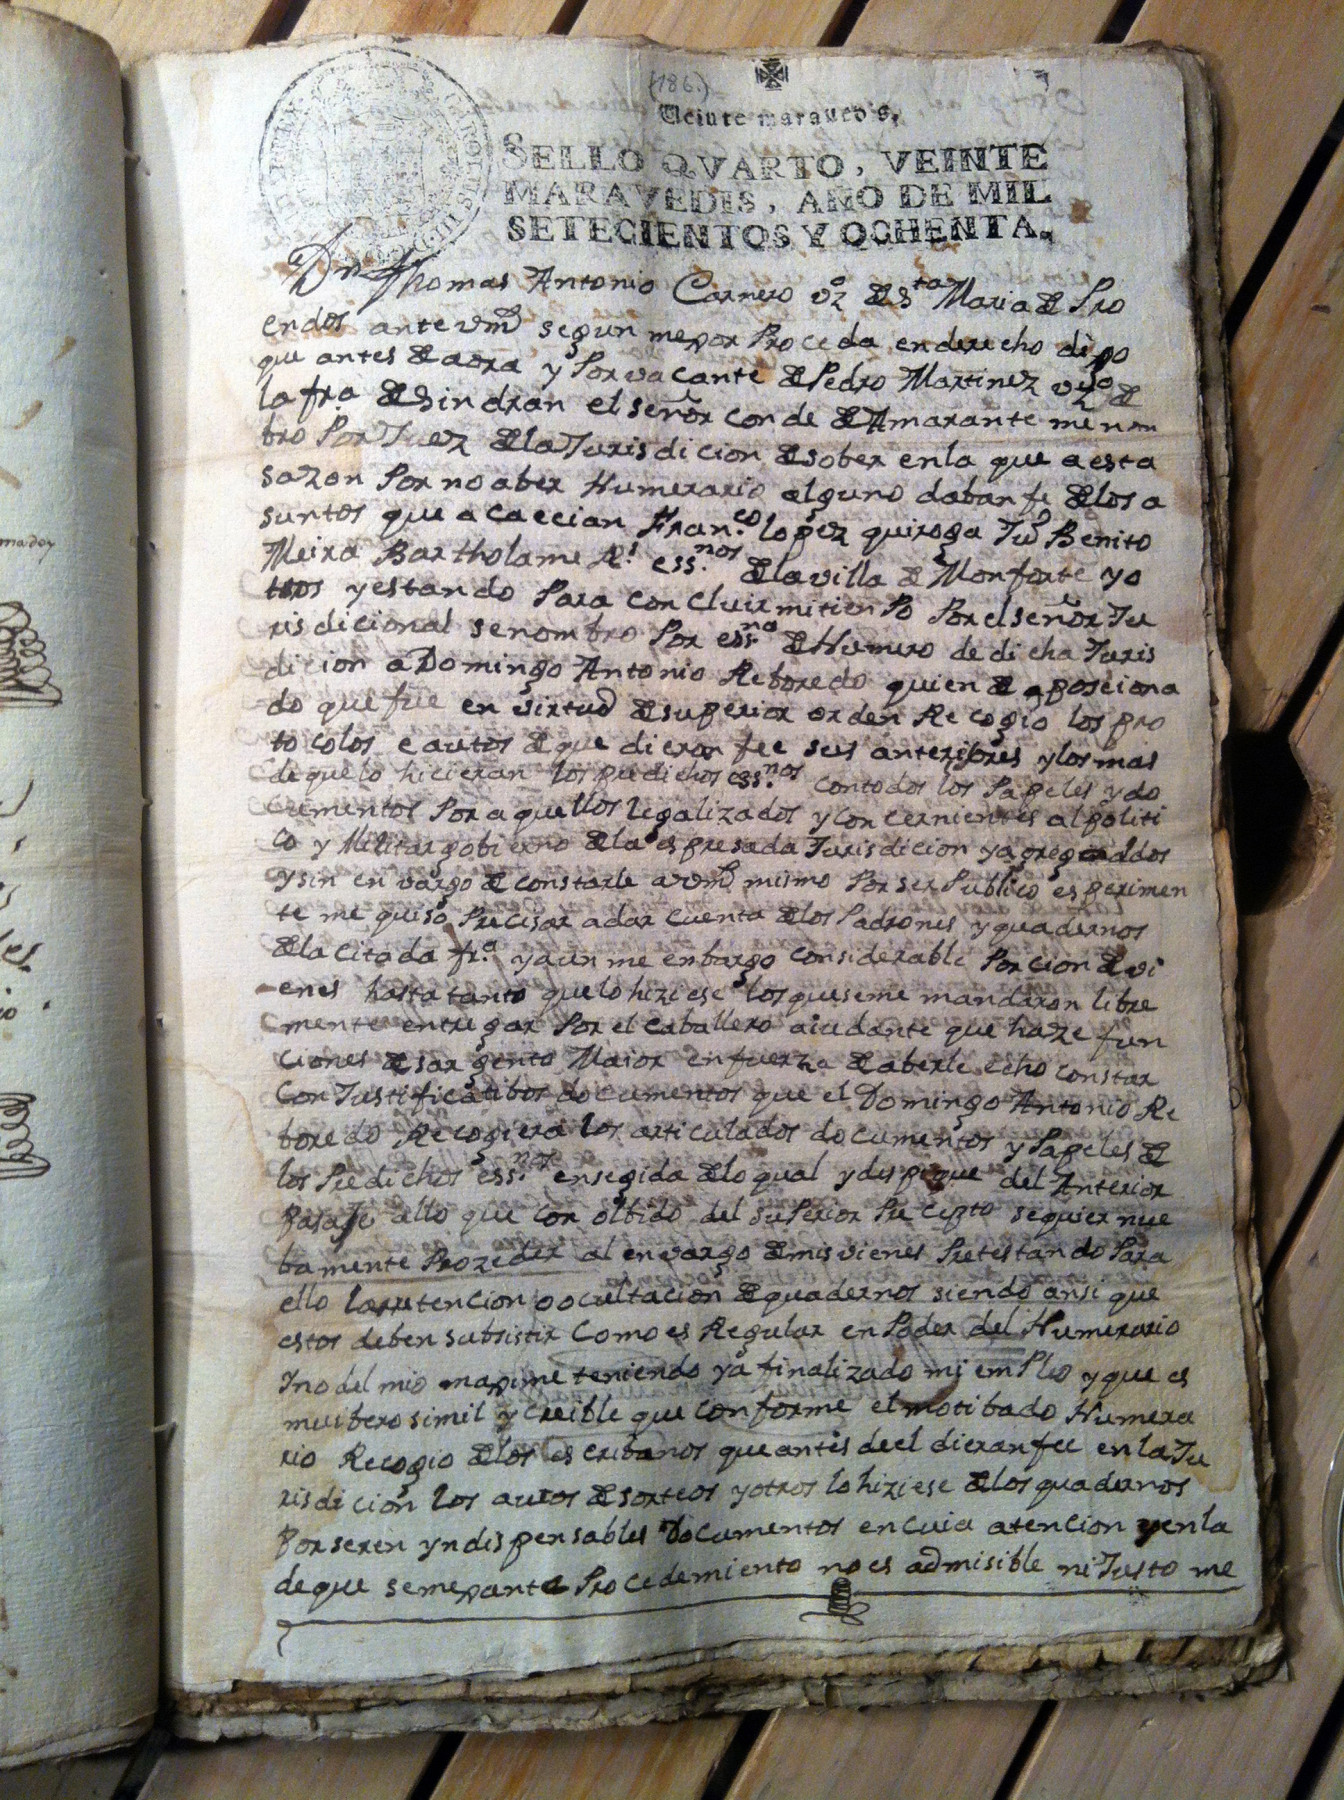 (186.)
Veinte maravedis.
SELLO QVARTO, VEINTE
MARAVEDIS, AÑO DE MIL
SETECIENTOS Y OCHENTA.
CAROLUS III D
Dn Thomas Antonio Carnero vº de Sta Maria de Pro
endos ante vmd segun mexor Proceda en derecho dixo
que antes de aora y Por vacante de Pedro Martinez vº de
la fra de Sindran el señor conde de Amarante me nom
bro Por Juez de la Jurisdicion de sober en la que a esta
sazon Por no aber Numerario alguno daban fe de los a
suntos que acaecian Fran.co lopez quiroga Juº Benito
Meira Bartholame Rs ess.nos de la villa de Monforte y o
tros y estando Para concluir mi tienPo Por el señor Ju
risdicional se nombro Por ess.no de Numero de dicha Juris
dicion a Domingo Antonio Reboredo quien de aposeciona
do que fue en virtud de superior orden Recogio los pro
tocolos e autos de que dieron fee sus anteriores y los mas
de que lo hicieran los predichos ess.nos con todos los Papeles y do
cumentos Por aquellos legalizados y concernientes al politi
co y Militar gobierno de la espresada Jurisdicion y agregados
y sin envargo de constarle a vmd mismo Por ser Publico esperimen
te me quiso Precisar a dar cuenta de los Padrones y quadernos
de la citada fr.a y aun me enbargo considerable Porcion de vi
enes hasta tanto que lo hiziese los que se me mandaron libre
mente entregar Por el caballero aiudante que haze fun
ciones de sargento Maior en fuerza de aberle echo constar
con Justificatibos documentos que el Domingo Antonio Re
boredo Recogiera los articulados documentos y Papeles de
los Predichos ess.nos ensegida de lo qual y despique del Anterior
pasaje allo que con olbido del suPerior Precepto se quier nue
bamente Prozeder al envargo de mis vienes Pretestando Para
ello la retencion o ocultacion de quadernos siendo ansi que
estos deben subsistir como es Regular en Poder del Numerario
y no del mio maxime teniendo ya finalizado mi emPleo y que es
mui berosimil y creible que conforme el motibado Numera
rio Recogio de los escribanos que antes de el dieran fee en la Ju
risdicion los autos de sorteos y otros lo hiziese de los quadernos
por seren yndispensables Documentos en cuia atencion y en la
de que semexante Procedemiento no es admisible ni Justo me